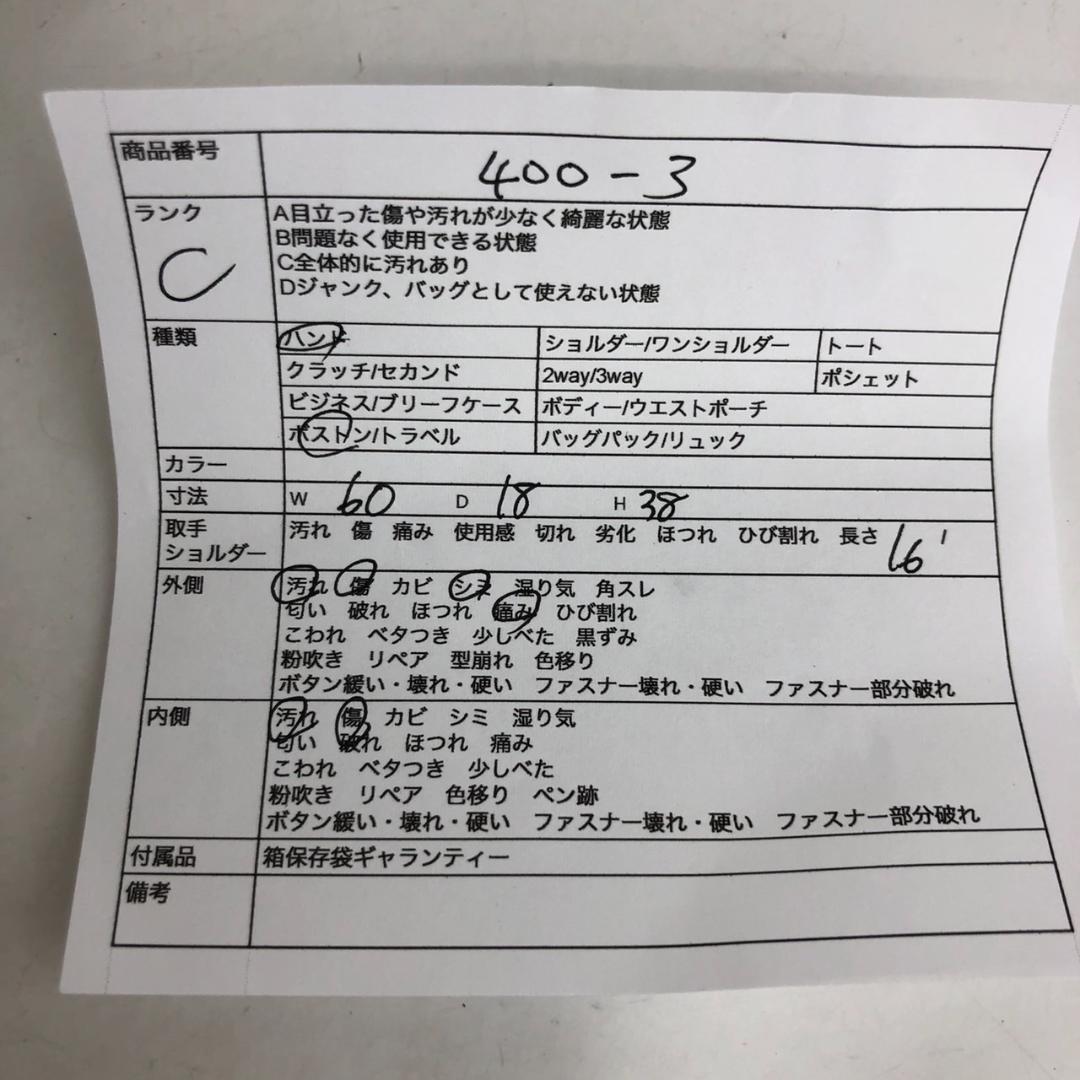 商品番号 400-3
ランク C
A目立った傷や汚れが少なく綺麗な状態
B問題なく使用できる状態
C全体的に汚れあり
Dジャンク、バッグとして使えない状態
種類 ハンド ショルダー/ワンショルダー トート
クラッチ/セカンド 2way/3way ポシェット
ビジネス/ブリーフケース ボディー/ウエストポーチ
ボストン/トラベル バッグパック/リュック
カラー
寸法 W 60 D 18 H 38
取手 汚れ 傷 痛み 使用感 切れ 劣化 ほつれ ひび割れ 長さ 16
ショルダー
外側 汚れ 傷 カビ シミ 湿り気 角スレ
匂い 破れ ほつれ 痛み ひび割れ
こわれ ベタつき 少しべた 黒ずみ
粉吹き リペア 型崩れ 色移り
ボタン緩い・壊れ・硬い ファスナー壊れ・硬い ファスナー部分破れ
内側 汚れ 傷 カビ シミ 湿り気
匂い 破れ ほつれ 痛み
こわれ ベタつき 少しべた
粉吹き リペア 色移り ペン跡
ボタン緩い・壊れ・硬い ファスナー壊れ・硬い ファスナー部分破れ
付属品 箱保存袋ギャランティー
備考